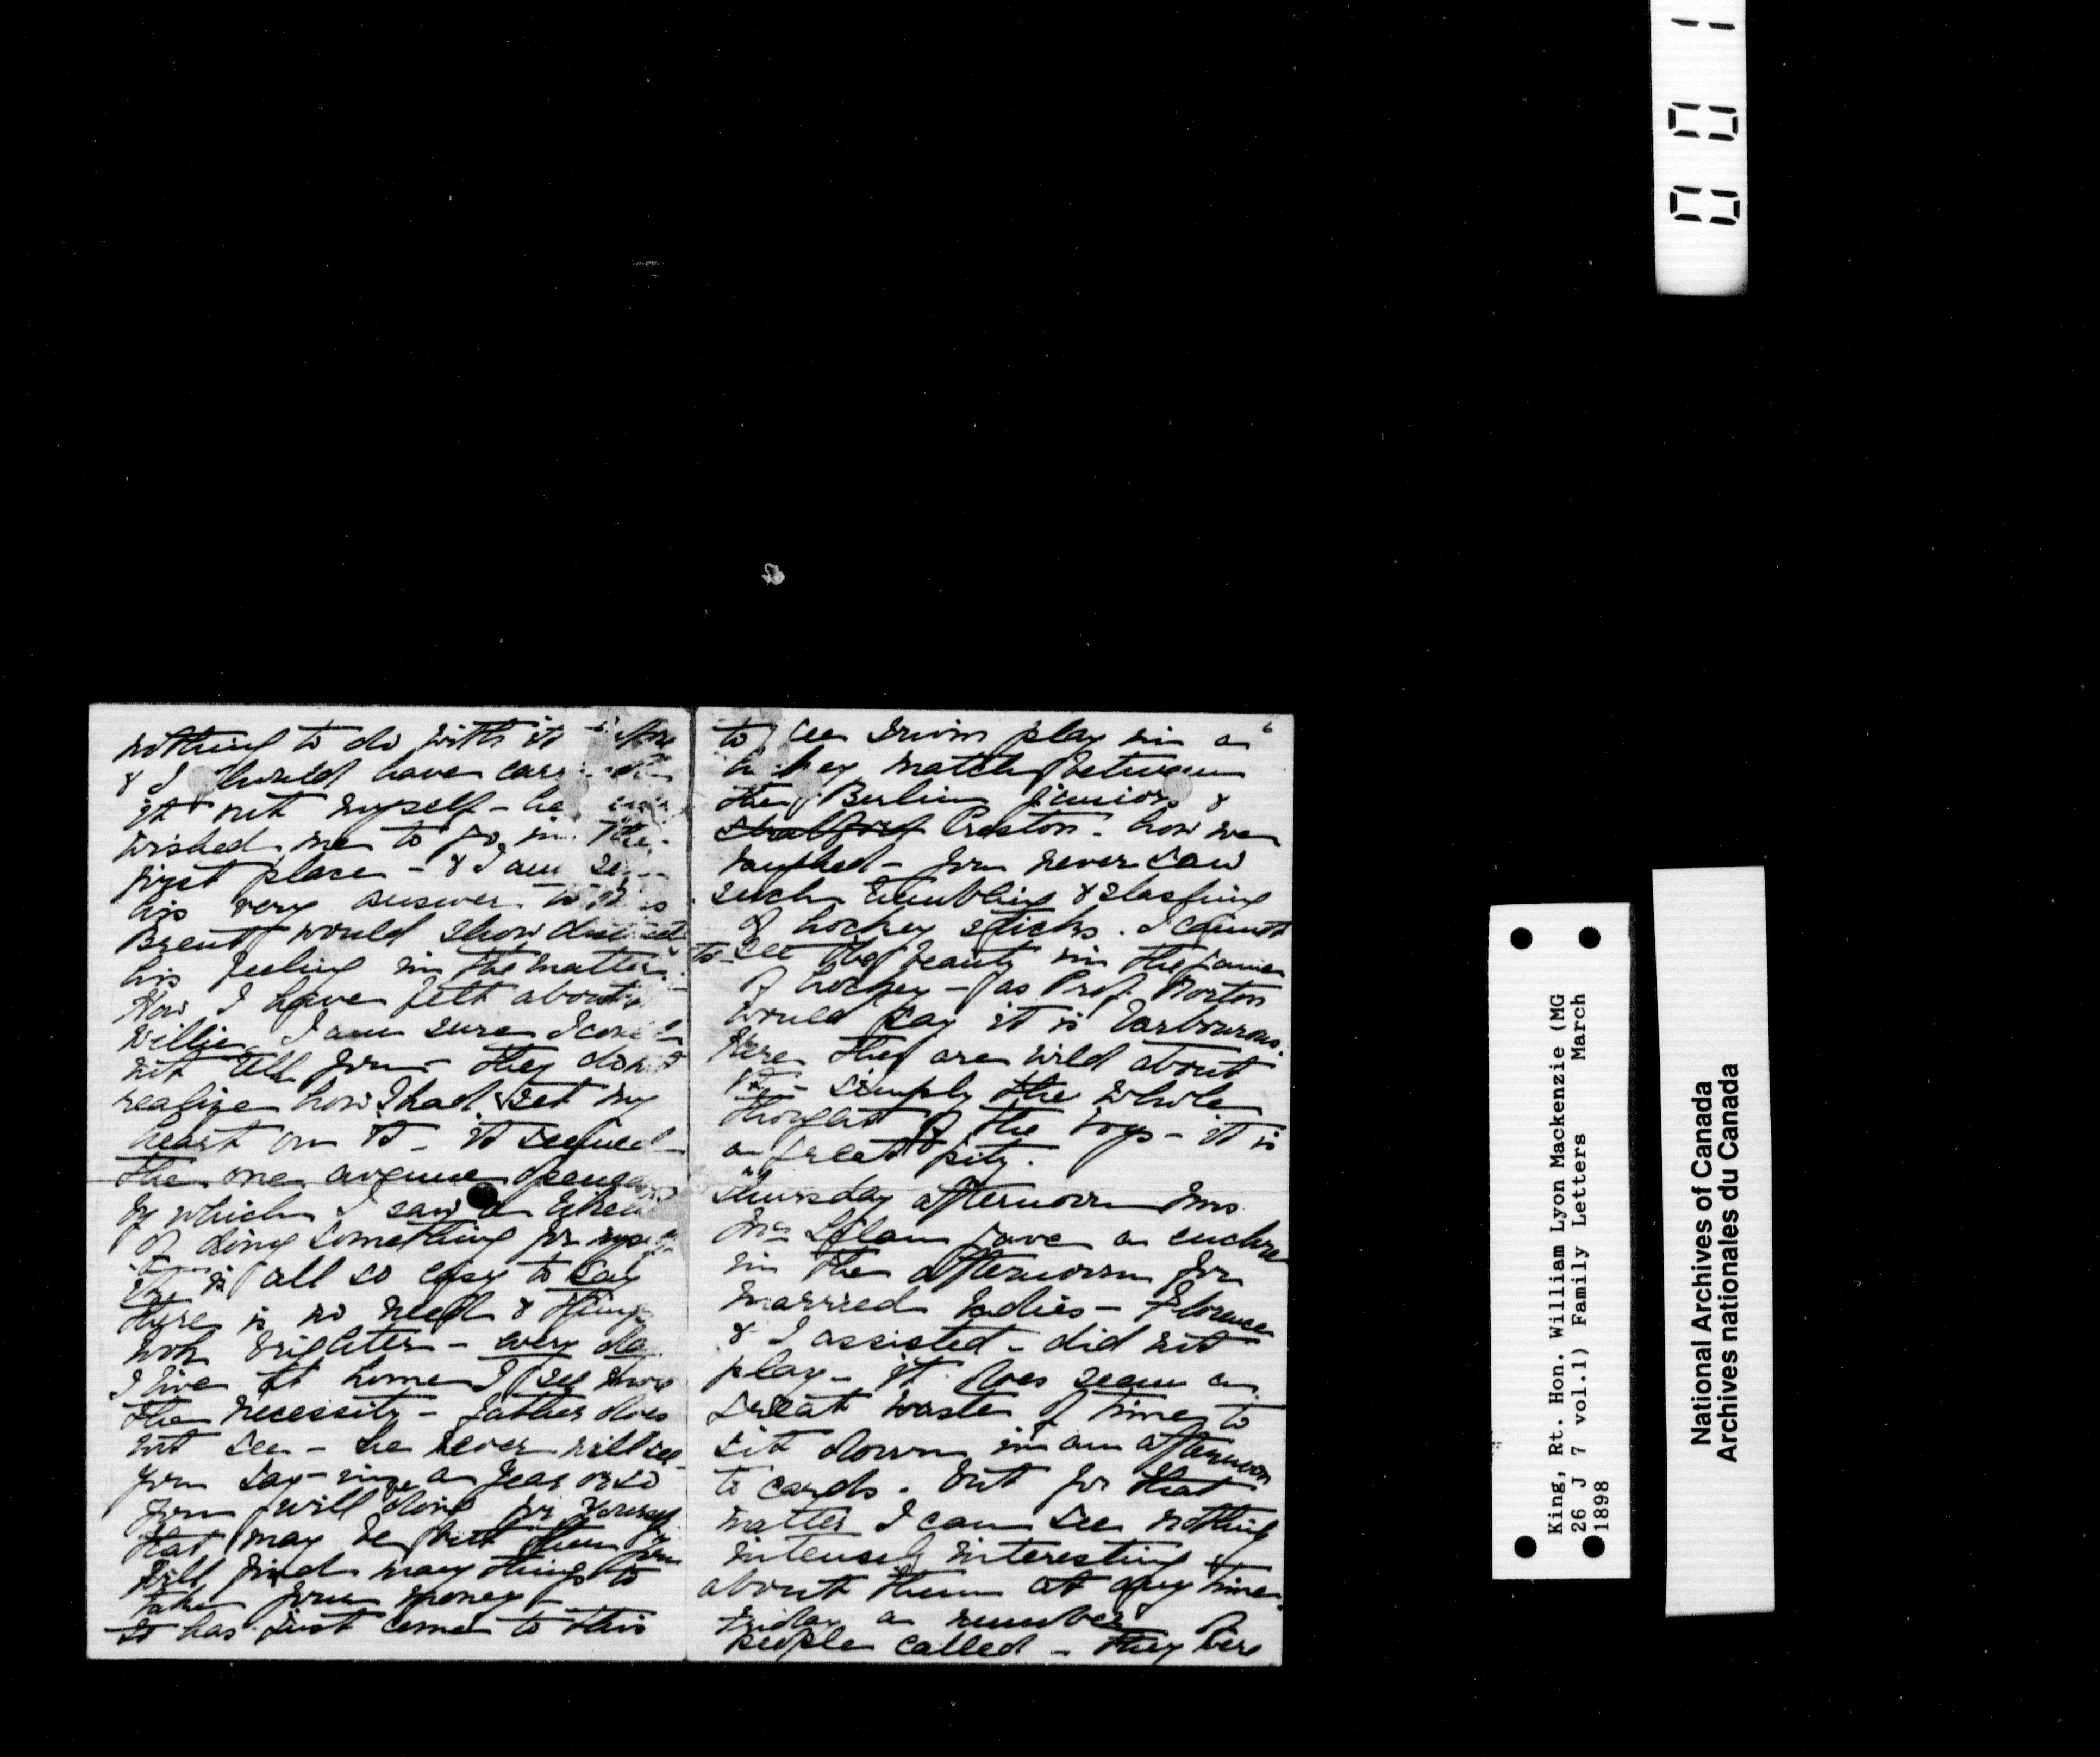 nothing to do with it
& I would have
it out myself - he
wished me to go in the
first place - & I am
his very answer to
Brent would show
his feeling in the matter.
How I have felt about
Willie I am sure I
not tell you - they don't
realize how I had set my
heart on it - it seemed
the one avenue opened
by which I saw a
of doing something for
it is all so easy to say
there is no need & things
look brighter - every day
I live at home I see more
the necessity - father does
not see - he never will see
you say - in a year or so
you will doing for yourself
that may be but then you
will find many things to
take your money -
It has just come to this
6
to see play in a
hockey match between
the Berlin juniors &
Stratford Preston. how we
laughed - you never saw
such tumbling & slashing
of hockey sticks. I cannot
to see the beauty in the game
of hockey - as Prof. Norton
would say it is barbourous.
Here they are wild about
it - simply the whole
thought of the boys - it is
a great pity.
Thursday afternoon Mrs
gave a euchre
in the afternoon for
married ladies - Florence
& I assisted - did not
play - it does seem a
great waste of time to
sit down in an afternoon
to cards. but for that
matter I can see nothing
intensely interesting
about them at any time.
Friday a number of
people called - they were
001
King, Rt. Hon. William Lyon Mackenzie (MG
26 J 7 vol.1) Family Letters March
1898
National Archives of Canada
Archives nationales du Canada